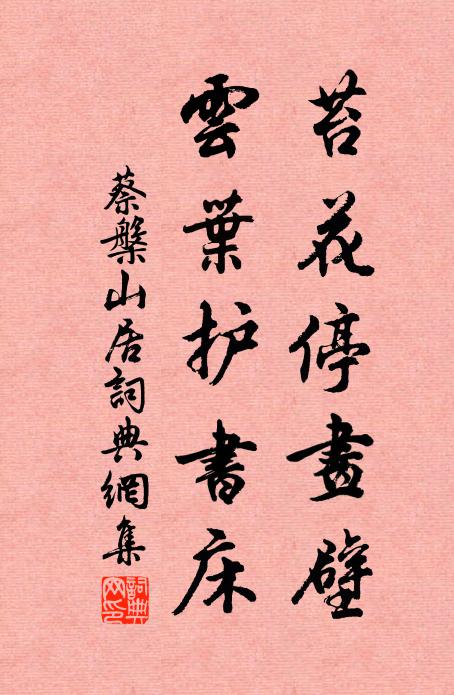 苔花停畫壁
雲葉护書床
蔡槃山居詞典網集
詞典網印